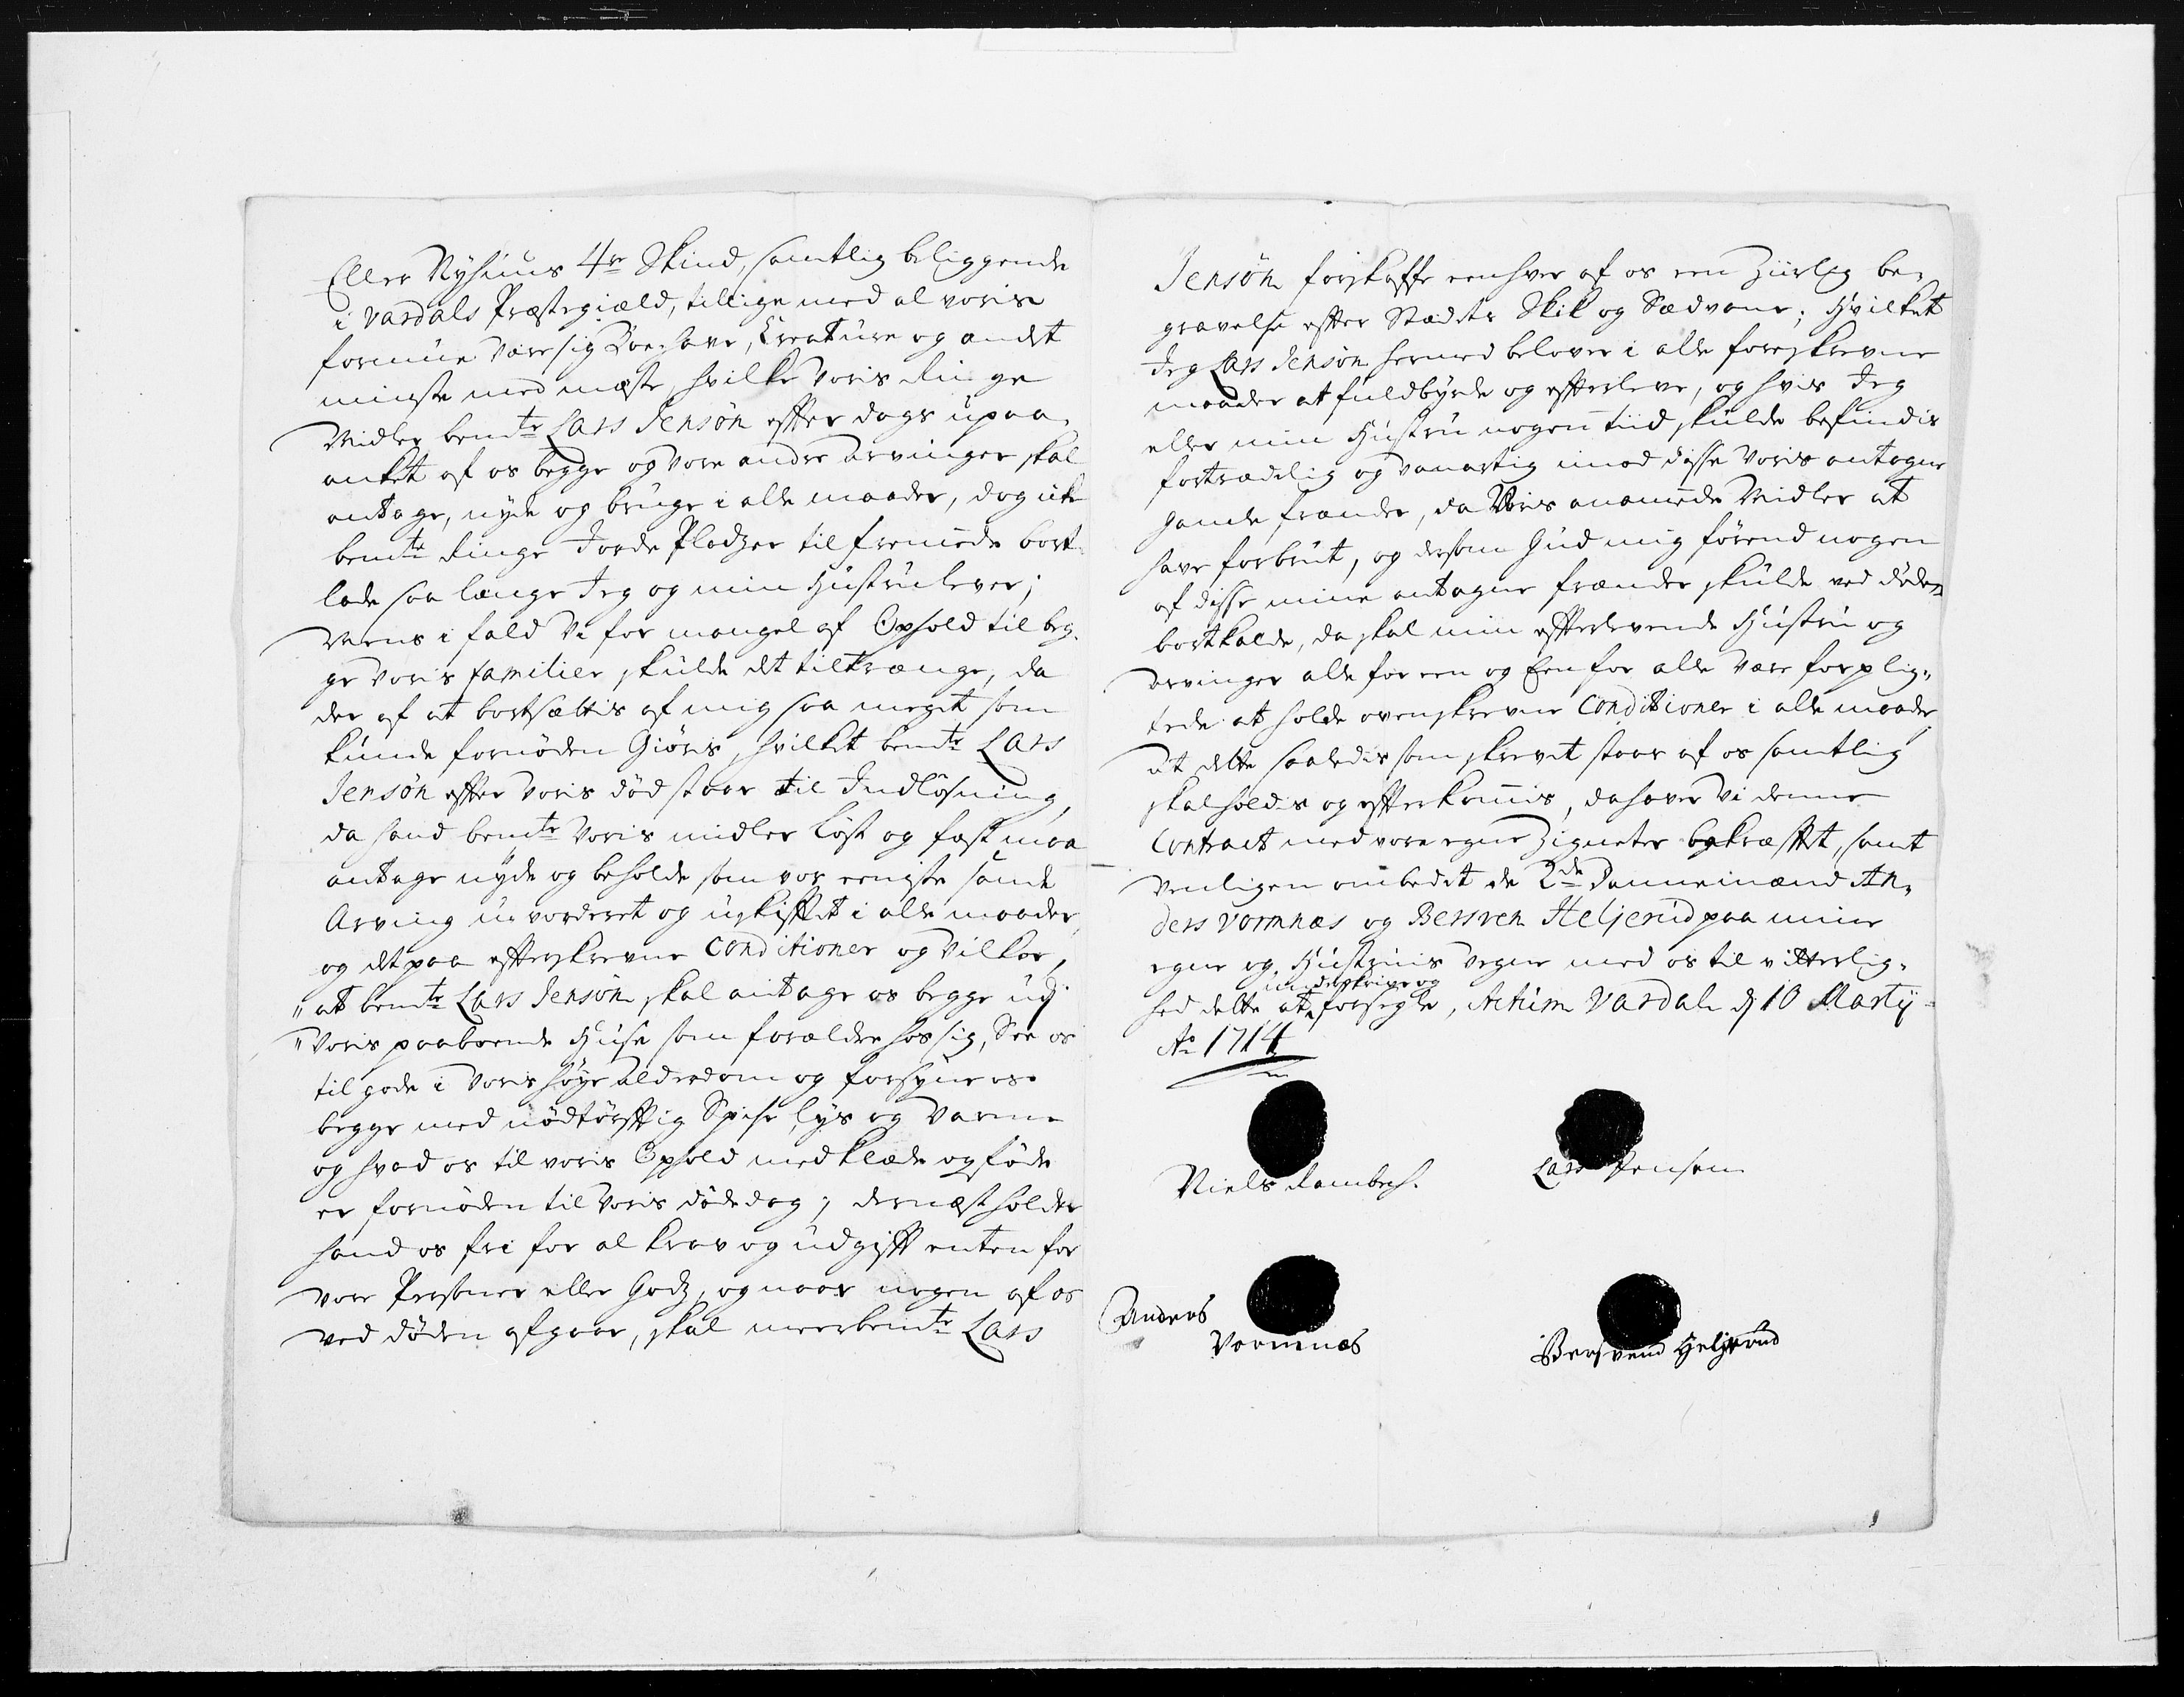 Eller Nyhuus 4re Skind, samtlig beliggende
i Vardals Præstegiæld, tillige med al voris
formue være sig Boehave, Creature og andet
minste med mæste, hvilke voris ringe
Midler bemte Lars Jensøn efter dags upaa¬
anket af os begge og vore andre Arvinger skal
antage, nyde og bruge i alle maader, dog icke
bemte ringe Jorde Pladzer til fremede bort¬
lade saa længe Jeg og min Hustru lever;
Mens i fald Vi for mangel af Ophold til beg¬
ge voris familier skulde det tiltrænge, da
der af at bortsættis af mig saa meget som
kunde fornøden Giøris, hvilket bemte Lars
Jensøn efter voris død staar til Indløsning,
da hand bemte voris midler løst og fast maa
antage nyde og beholde som vor eeniste sande
Arving uvorderet og uskifftet i alle maader,
og det paa effterskrevne Conditioner og Vilkor,
" at bemte Lars Jensøn skal antage os begge udj
" Voris paaboende Huse som forældre hos sig, See os
til gode i voris høye alderdom og forsyne os
begge med nødtørfftig Spise, lys og Varme
og hvad os til voris Ophold med klæde og føde
er fornøden til voris dødedag; dernæst holder
hand os fri for al krav og udgifft enten for
vore Persohner eller Godz, og naar nogen af os
ved døden afgaar, skal meerbemte Lars
Jensøn forskaffe eenhver af os een ziirlig be¬
gravelse effter Stædets Skik og Sædvane; Hvilket
Jeg Lars Jensøn hermed belover i alle foreskrevne
maader at fuldbyrde og effterleve, og hvis Jeg
eller min Hustru nogen tiid skulde befindis
fortrædelig og vanartig imod disse voris antagne
gamle frænder, da Voris anamede Midler at
have forbrut, og dersom Gud mig førend nogen
af disse mine antagne frænder skulde ved døden
bortkalde, da skal min effterlevende Hustru og
arvinger alle for een og Een for alle være forplig¬
tede at holde ovenskrevne Conditioner i alle maader
At dette saaledis som skrevet staar af os samtlig
skal holdis og effterkommis, da haver Vi denne
Contract med vore egne Zigneter bekræfftet, samt
venligen ombedet de 2de Dannemænd An¬
ders Vormnæs og Bersven Heljerud paa mine
egne og Hustruis vegne med os til vitterlig¬
underskrive og
hed dette at forsegle, Actum Vardahl dj 10 Martij
Ao 1714
Niels Rambech.
Lars Jensen
Anders
Vormnæs
Bersvend Heljerud